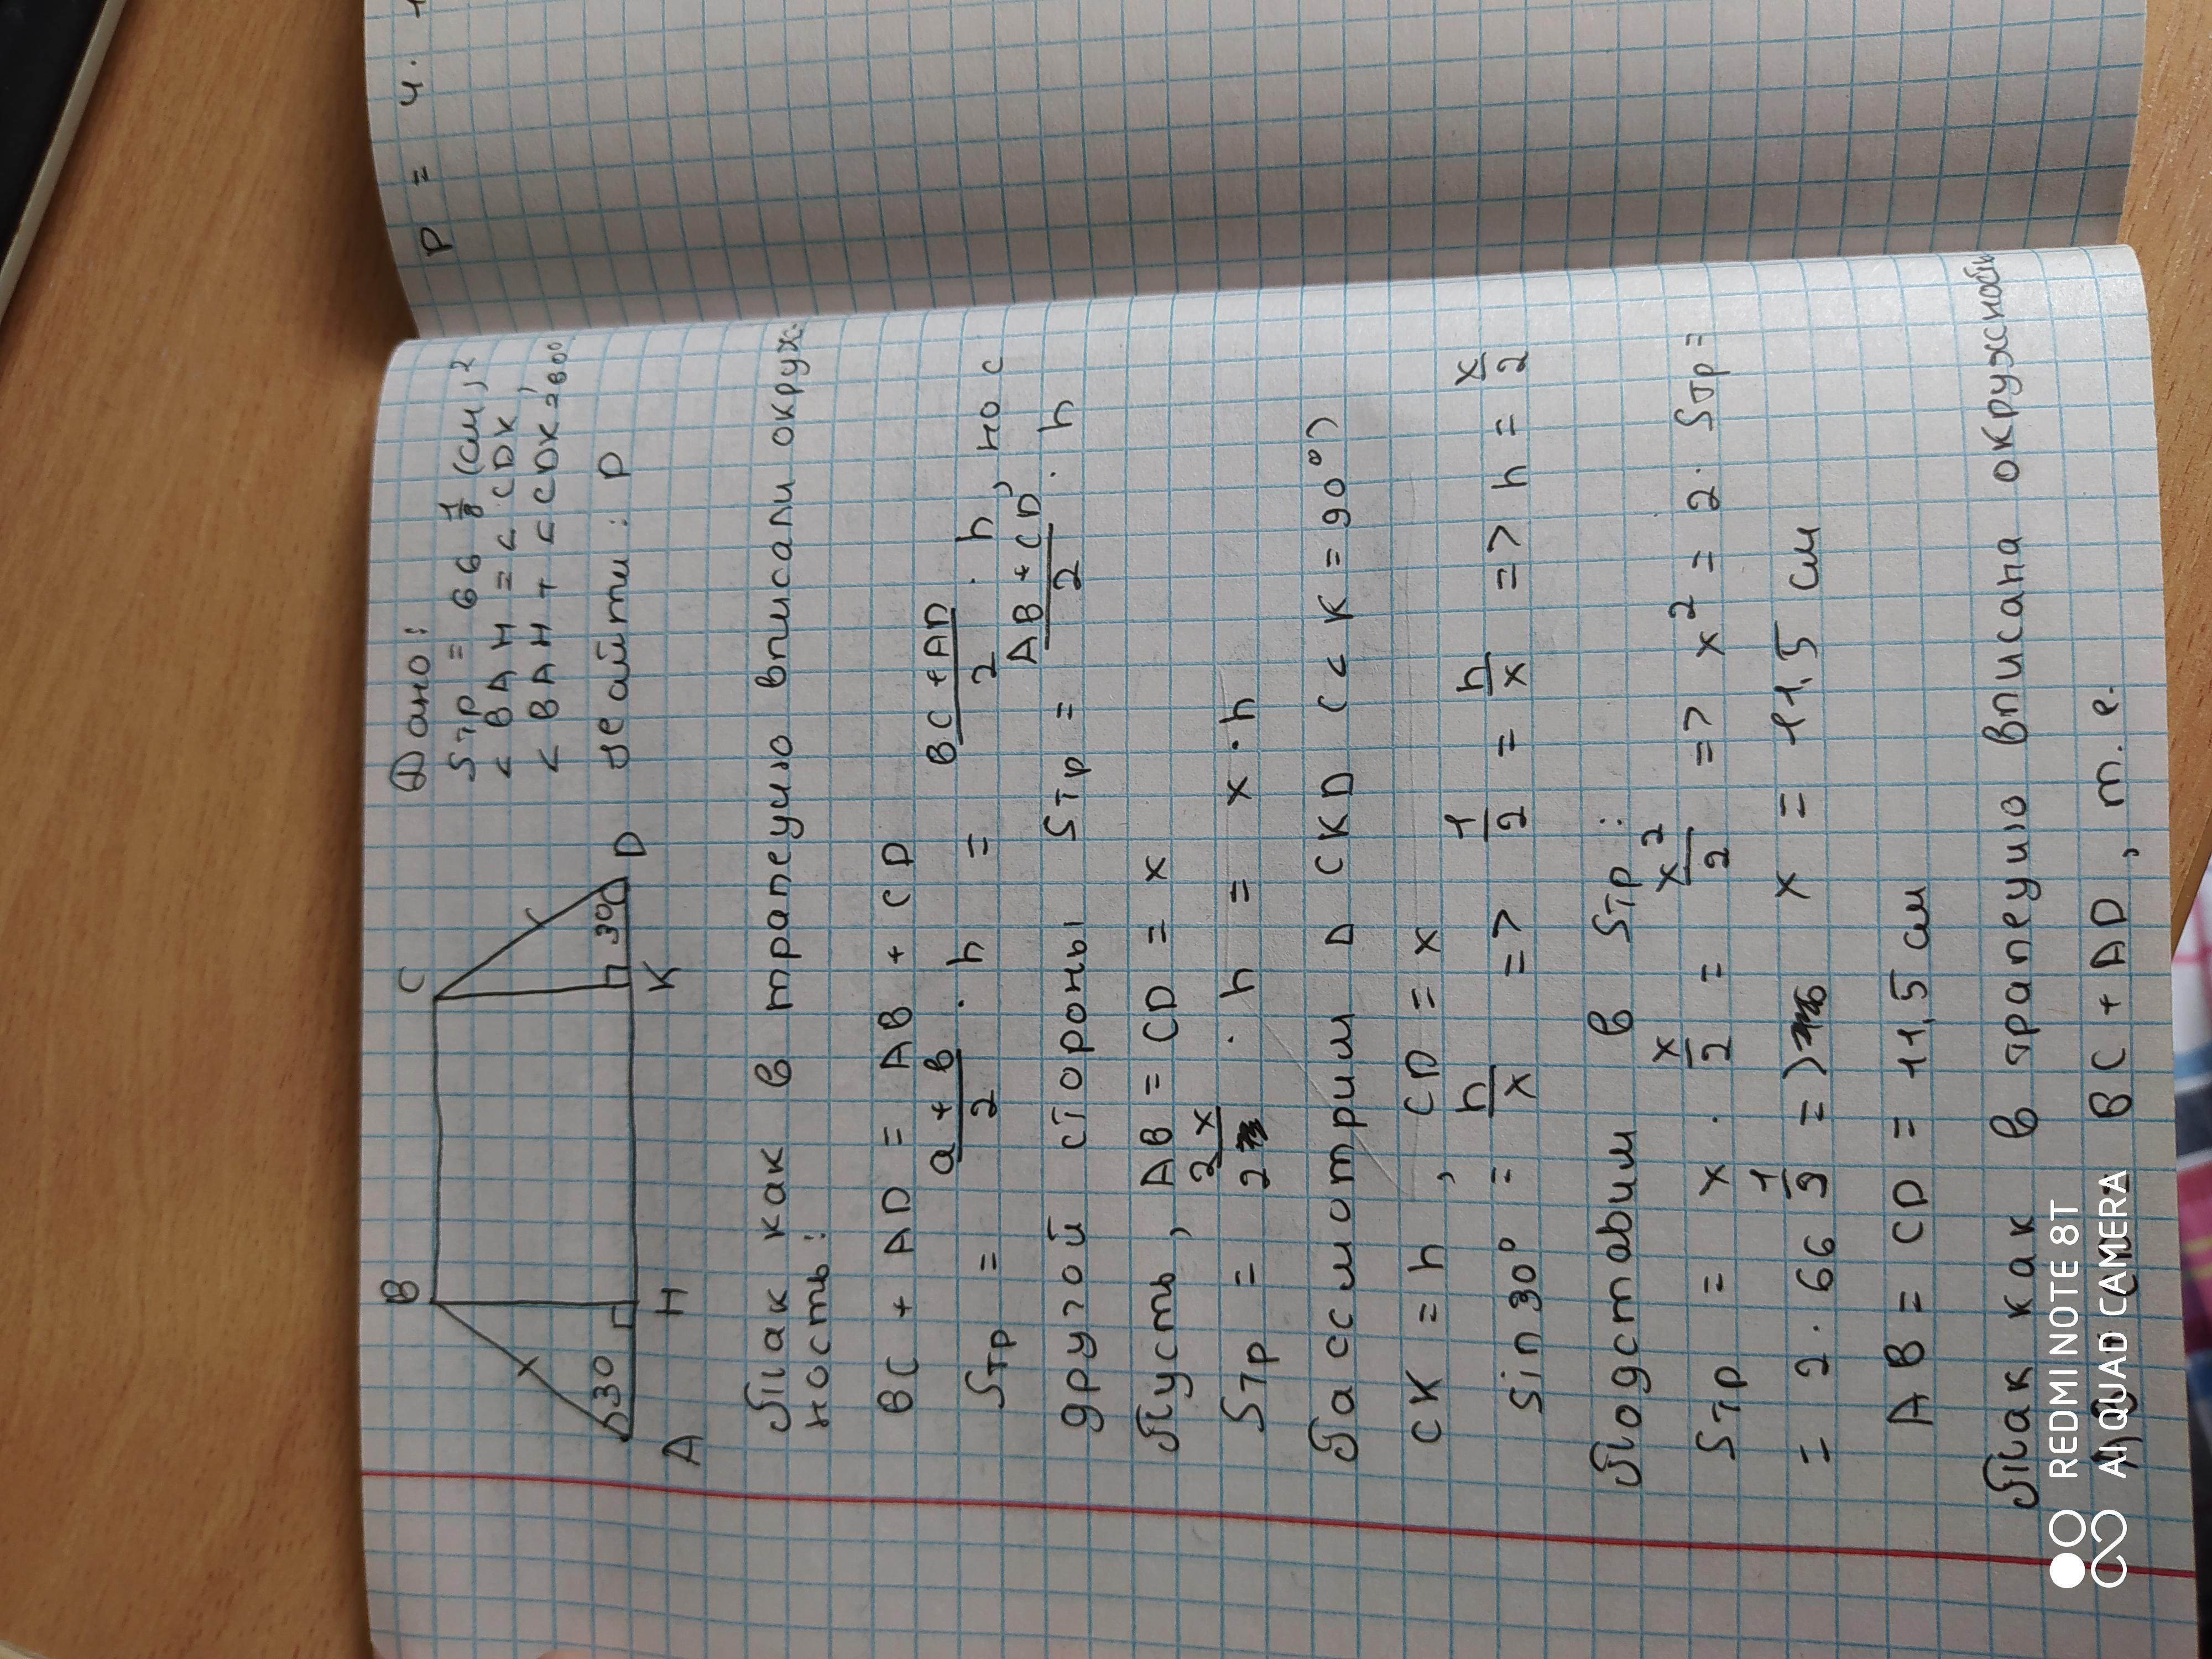 Дано:
Sтр = 66 1/8 (см)²
∠BAH = ∠CDK
∠BAH + ∠CDK = 60°
Найти: P
B C
30 30
A H K D
Так как в трапецию вписали окруж-
ность:
BC + AD = AB + CD
Sтр = a + b / 2 · h = BC + AD / 2 · h, но с
другой стороны Sтр = AB + CD / 2 · h
Пусть, AB = CD = x
Sтр = 2x / 2 · h = x · h
Рассмотрим Δ CKD (∠K = 90°)
CK = h, CD = x
sin 30° = h/x => 1/2 = h/x => h = x/2
Подставим в Sтр:
Sтр = x · x/2 = x²/2 => x² = 2 · Sтр =
= 2 · 66 1/8 => x = 11,5 см
AB = CD = 11,5 см
Так как в трапецию вписана окружность
BC + AD, т.е.
P = 4 ·
REDMI NOTE 8T
AI QUAD CAMERA